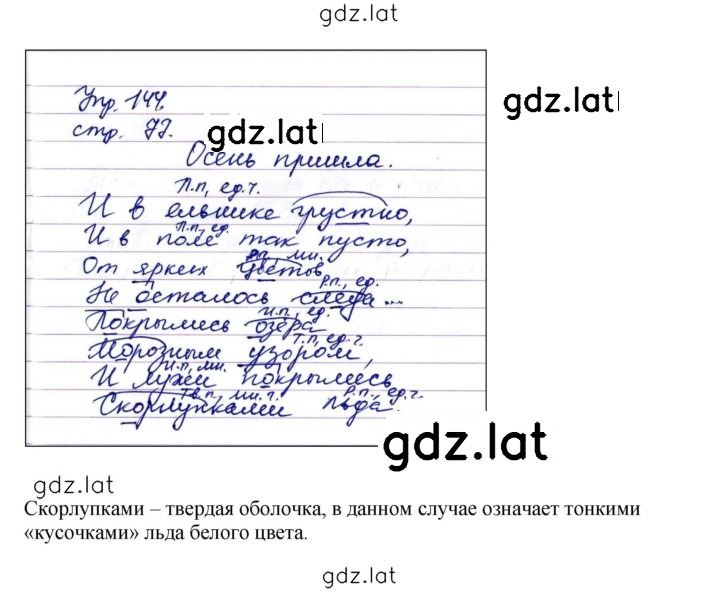 gdz.lat
Упр. 144.
gdz.lat
стр. 77.
gdz.lat
Осень пришла.
П.п, ед.ч.
И в ельнике грустно,
П.п, ед.
И в поле так пусто,
р.п., мн.
От ярких цветов
р.п., ед.
Не осталось следа...
и.п., ед.
Покрылись озёра
т.п, ед.ч.
Морозным узором,
и.п, мн.
И лужи покрылись
Тв.п, мн.ч. р.п., ед.ч.
Скорлупками льда.
gdz.lat
gdz.lat
Скорлупками – твердая оболочка, в данном случае означает тонкими
«кусочками» льда белого цвета.
gdz.lat